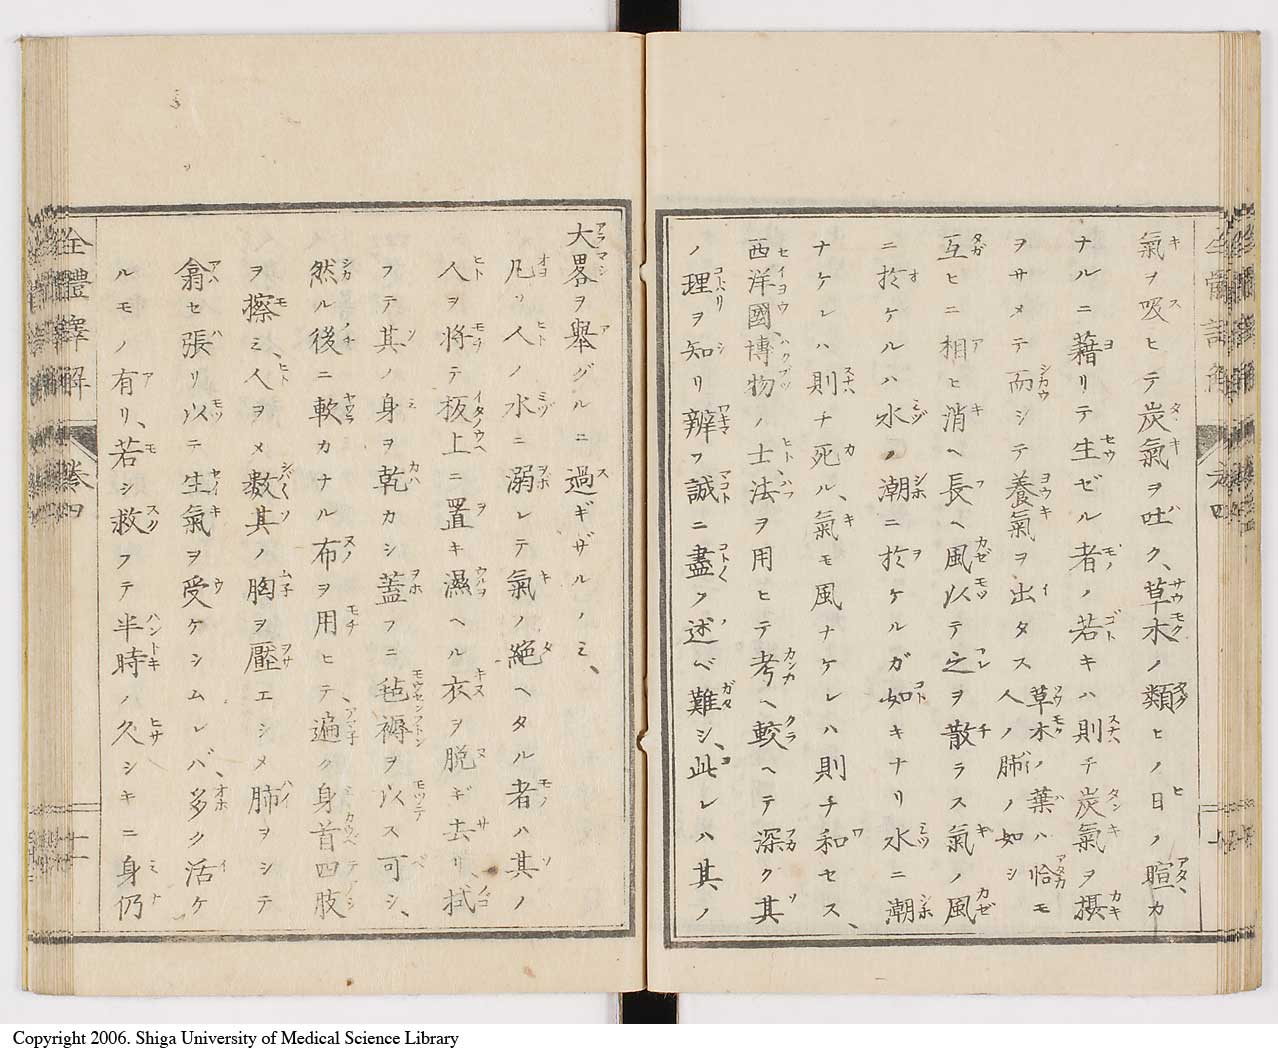 氣ヲ吸ヒテ炭氣ヲ吐ク、草木ノ類ヒノ日ノ暄カ
ナルニ藉リテ生ゼル者ノ若キハ則チ炭氣ヲ摂
ヲサメテ而シテ養氣ヲ出タス草木ノ葉ハ恰モ人ノ肺ノ如シ
互ヒニ相ヒ消ヘ長ヘ風以テ之ヲ散ラス氣ノ風
ニ於ケルハ水ノ潮ニ於ケルガ如キナリ水ニ潮
ナケレハ則チ死ル、氣モ風ナケレハ則チ和セス、
西洋國、博物ノ士、法ヲ用ヒテ考ヘ較ヘテ深ク其
ノ理ヲ知リ辨フ誠ニ盡ク述ベ難シ、此レハ其ノ
大畧ヲ舉グルニ過ギザルノミ、
凡ソ人ノ水ニ溺レテ氣ノ絶ヘタル者ハ其ノ
人ヲ将テ板上ニ置キ濕ヘル衣ヲ脱ギ去リ、拭
フテ其ノ身ヲ乾カシ蓋フニ毡褥ヲ以ス可シ、
然ル後ニ軟カナル布ヲ用ヒテ、遍ク身首四肢
ヲ擦ミ、人ヲメ數其ノ胸ヲ壓エシメ肺ヲシテ
翕セ張リ以テ生氣ヲ受ケシムレバ、多ク活ケ
ルモノ有リ、若シ救フテ半時ノ久シキニ身仍
全體譯解 巻四
十一
Copyright 2006. Shiga University of Medical Science Library